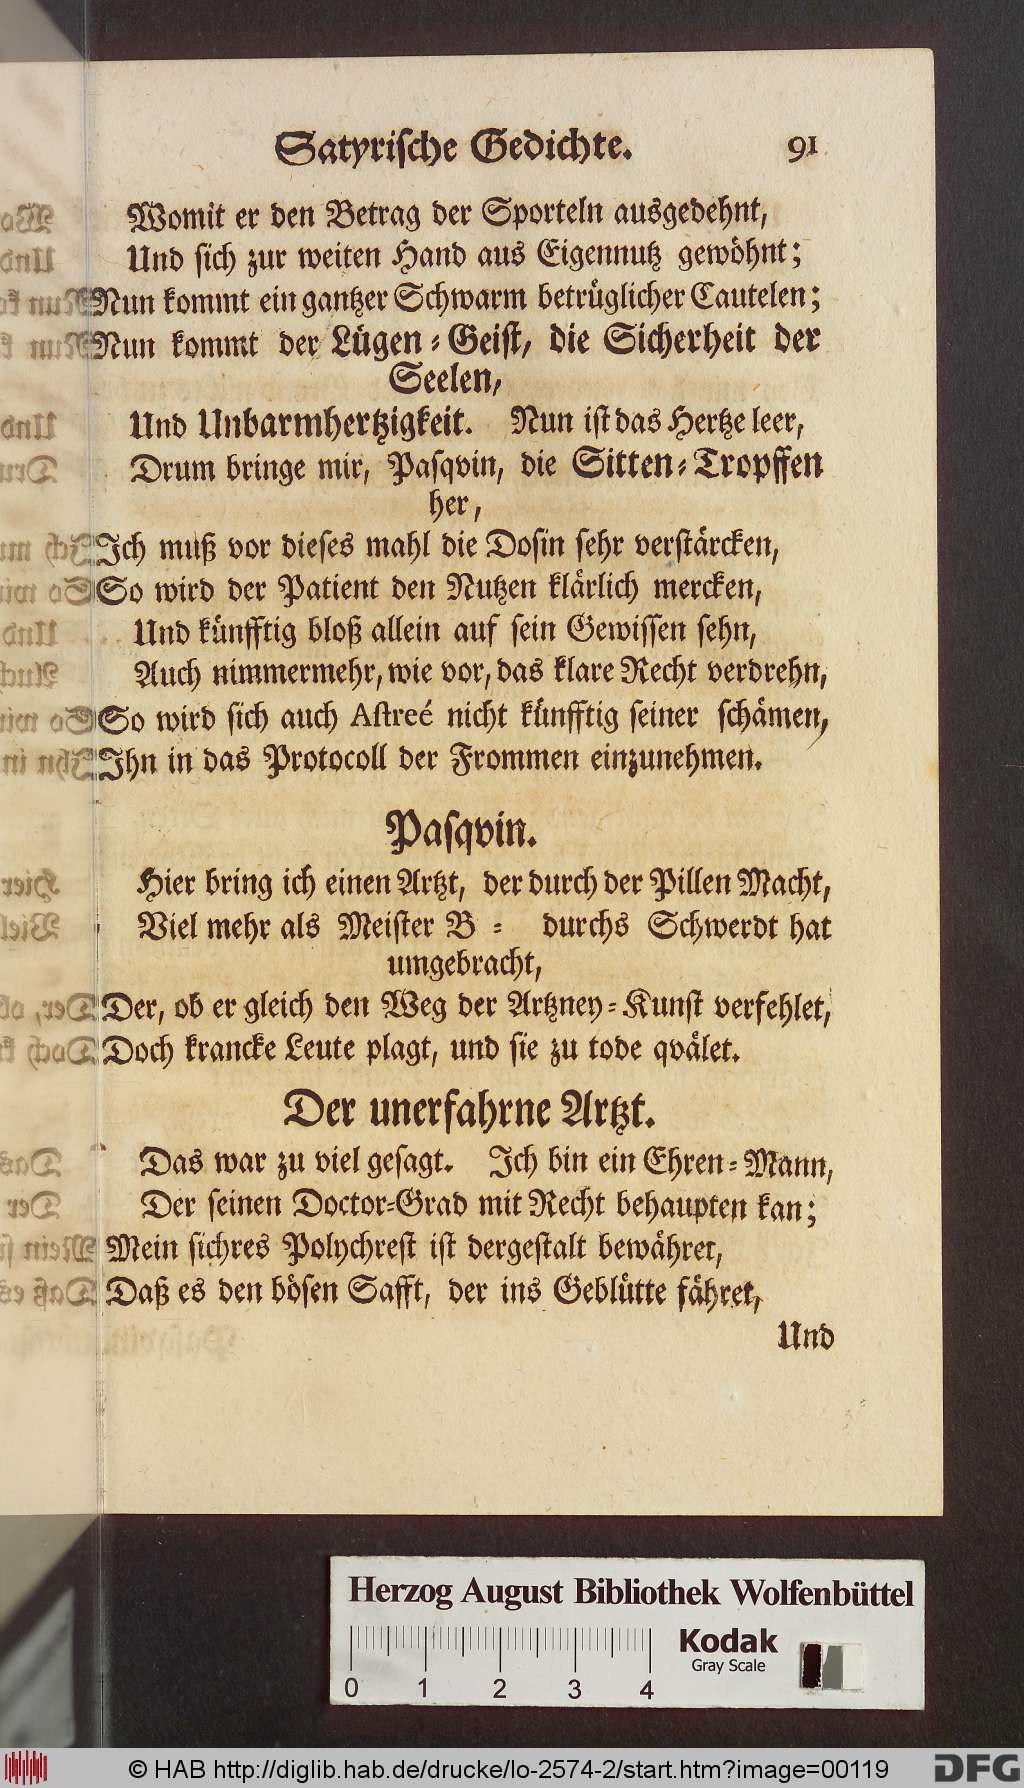 Satyrische Gedichte. 91
Womit er den Betrag der Sporteln ausgedehnt,
Und sich zur weiten Hand aus Eigennutz gewöhnt;
Nun kommt ein gantzer Schwarm betrüglicher Cautelen;
Nun kommt der Lügen-Geist, die Sicherheit der
Seelen,
Und Unbarmhertzigkeit. Nun ist das Hertze leer,
Drum bringe mir, Pasqvin, die Sitten-Tropffen
her,
Ich muß vor dieses mahl die Dosin sehr verstärcken,
So wird der Patient den Nutzen klärlich mercken,
Und künfftig bloß allein auf sein Gewissen sehn,
Auch nimmermehr, wie vor, das klare Recht verdrehn,
So wird sich auch Astreé nicht künfftig seiner schämen,
Ihn in das Protocoll der Frommen einzunehmen.
Pasqvin.
Hier bring ich einen Artzt, der durch der Pillen Macht,
Viel mehr als Meister B = durchs Schwerdt hat
umgebracht,
Der, ob er gleich den Weg der Artzney-Kunst verfehlet,
Doch krancke Leute plagt, und sie zu tode qvälet.
Der unerfahrne Artzt.
Das war zu viel gesagt. Ich bin ein Ehren-Mann,
Der seinen Doctor-Grad mit Recht behaupten kan;
Mein sichres Polychrest ist dergestalt bewähret,
Daß es den bösen Safft, der ins Geblütte fähret,
Und
Herzog August Bibliothek Wolfenbüttel
Kodak
Gray Scale
0 1 2 3 4
© HAB http://diglib.hab.de/drucke/lo-2574-2/start.htm?image=00119
DFG